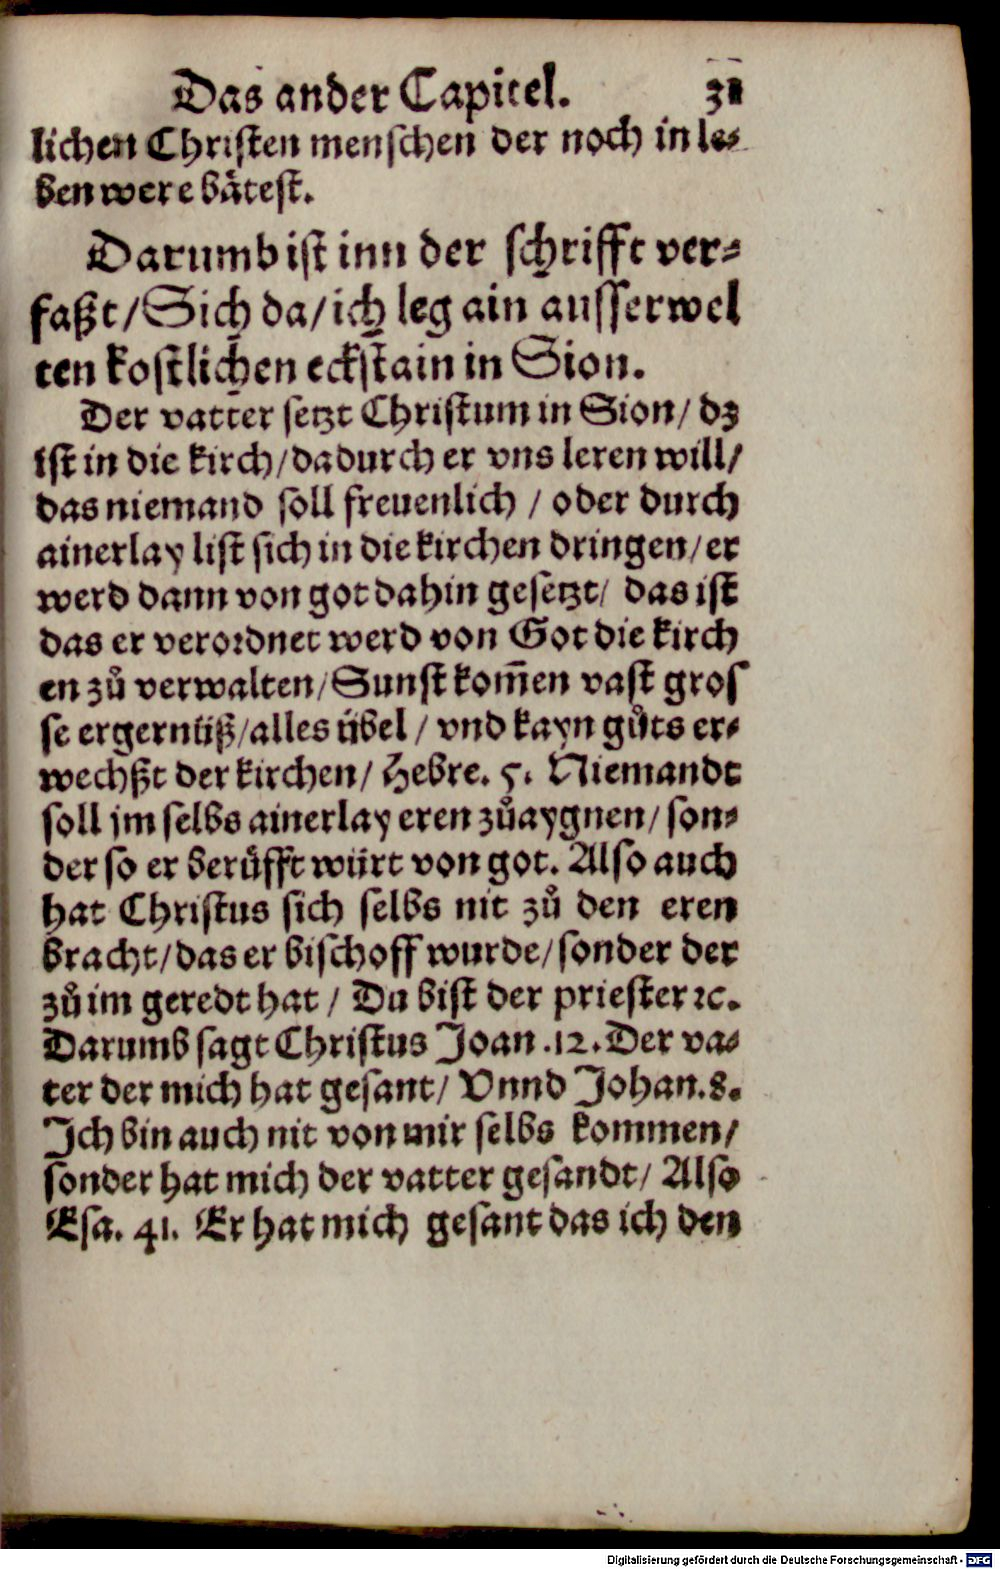 Das ander Capitel. 31
lichen Christen menschen der noch in le⸗
ben were bätest.
Darumb ist inn der schrifft ver⸗
faßt/ Sich da/ ich leg ain ausserwel
ten kostlichen eckstain in Sion.
Der vatter setzt Christum in Sion/ dz
ist in die kirch/ dadurch er vns leren will/
das niemand soll freuenlich / oder durch
ainerlay list sich in die kirchen dringen/ er
werd dann von got dahin gesetzt/ das ist
das er verordnet werd von Got die kirch
en zů verwalten/ Sunst kom̄en vast gros
se ergernüß/ alles übel / vnd kayn gůts er⸗
wechßt der kirchen/ Hebre. 5. Niemandt
soll jm selbs ainerlay eren zůaygnen/ son⸗
der so er berüfft würt von got. Also auch
hat Christus sich selbs nit zů den eren
bracht/ das er bischoff wurde/ sonder der
zů im geredt hat / Du bist der priester ꝛc.
Darumb sagt Christus Joan .12. Der va⸗
ter der mich hat gesant/ Vnnd Johan. 8.
Ich bin auch nit von mir selbs kommen/
sonder hat mich der vatter gesandt/ Also
Esa. 41. Er hat mich gesant das ich den
Digitalisierung gefördert durch die Deutsche Forschungsgemeinschaft - DFG